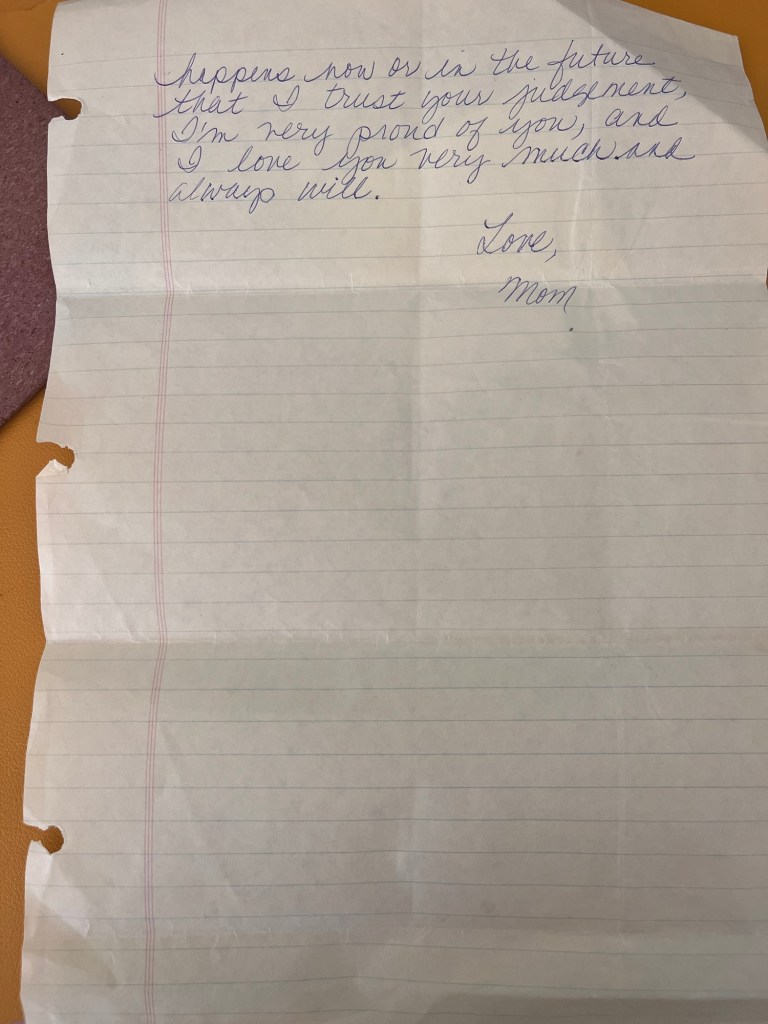 happens now or in the future
that I trust your judgement,
I'm very proud of you, and
I love you very much and
always will.
Love,
Mom